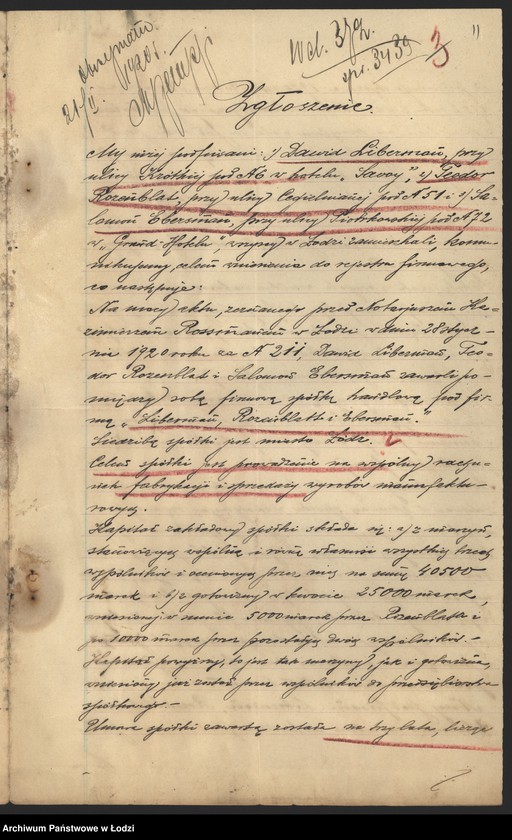 otrzymałem
21/II. 1920 r.
Wd. 372.
rpr. 3439
3
11
Zgłoszenie.
My niżej podpisani: 1) Dawid Liberman, przy
ulicy Krótkiej pod № 6 w hotelu "Savoy", 2) Teodor
Rozenblat, przy ulicy Cegielnianej pod № 51 i 3) Sa-
lomon Eberman, przy ulicy Piotrkowskiej pod № 72
w "Grand Hotelu" wszyscy w Łodzi zamieszkali, komu-
nikujemy celem wniesienia do rejestru firmowego,
co następuje:
Na mocy aktu, zeznanego przed Notarjuszem Ka-
zimierzem Rossmanem w Łodzi w dniu 28 stycz-
nia 1920 roku za № 211, Dawid Liberman, Teo-
dor Rozenblat i Salomon Eberman zawarli po-
między sobą firmową spółkę handlową pod fir-
mą "Liberman, Rozenblatt i Eberman."
Siedzibą spółki jest miasto Łódź.
Celem spółki jest prowadzenie na wspólny rachu-
nek fabrykacji i sprzedaży wyrobów manufaktu-
rowych.
Kapitał zakładowy spółki składa się: a) z maszyn,
stanowiących wspólną i równą własność wszystkich trzech
wspólników i ocenionych przez nich na sumę 40500
marek i b) z gotowizny w kwocie 25000 marek,
wniesionej w sumie 5000 marek przez Rozenblata i
po 10000 marek przez pozostałych dwóch wspólników. -
Kapitał powyższy, to jest tak maszyny, jak i gotowizna,
wniesiony już został przez wspólników do przedsiębiorstwa
spółkowego. -
Umowa spółki zawartą została na trzy lata, licząc
Archiwum Państwowe w Łodzi